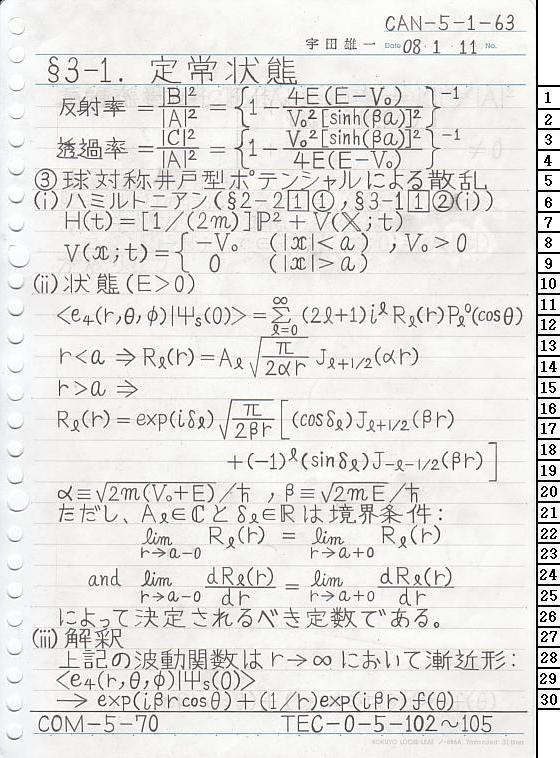 CAN-5-1-63
宇田雄一 Date 08・1・11 No.
§3-1. 定常状態
反射率 = |B|²/|A|² = {1 - 4E(E-V₀)/V₀²[sinh(βa)]²}⁻¹
透過率 = |C|²/|A|² = {1 + V₀²[sinh(βa)]²/4E(E-V₀)}⁻¹
③ 球対称井戸型ポテンシャルによる散乱
(i) ハミルトニアン(§2-2 1 ①, §3-1 1 ②(i))
H(t)=[1/(2m)]ℙ²+V(𝕏;t)
V(𝕩;t)={-V₀ (|𝕩|<a) , V₀>0
0 (|𝕩|>a)
(ii) 状態(E>0)
<e₄(r,θ,φ)|Ψs(0)>=∑_{ℓ=0}^{∞}(2ℓ+1)i^ℓ Rℓ(r)Pℓ⁰(cosθ)
r<a ⇒ Rℓ(r)=Aℓ√(π/2αr) J_{ℓ+1/2}(αr)
r>a ⇒
Rℓ(r)=exp(iδℓ)√(π/2βr)[(cosδℓ)J_{ℓ+1/2}(βr)
+(-1)^ℓ(sinδℓ)J_{-ℓ-1/2}(βr)]
α≡√2m(V₀+E)/ℏ , β≡√2mE/ℏ
ただし、Aℓ∈ℂとδℓ∈ℝは境界条件:
lim_{r→a-0} Rℓ(r) = lim_{r→a+0} Rℓ(r)
and lim_{r→a-0} dRℓ(r)/dr = lim_{r→a+0} dRℓ(r)/dr
によって決定されるべき定数である。
(iii) 解釈
上記の波動関数はr→∞において漸近形:
<e₄(r,θ,φ)|Ψs(0)>
→ exp(iβr cosθ)+(1/r)exp(iβr)f(θ)
COM-5-70 TEC-0-5-102〜105
1
2
3
4
5
6
7
8
9
10
11
12
13
14
15
16
17
18
19
20
21
22
23
24
25
26
27
28
29
30